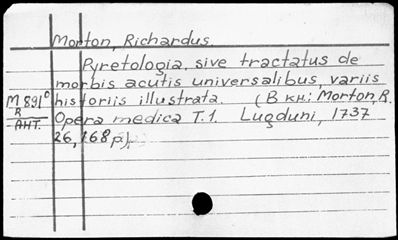 Morton, Richardus.
Pyretologia, sive tractatus de
morbis acutis universalibus, variis
historiis illustrata. (В кн.: Morton, R.
Opera medica T.1. Lugduni, 1737
26, 168 p).
М 891⁰
R
АНТ.